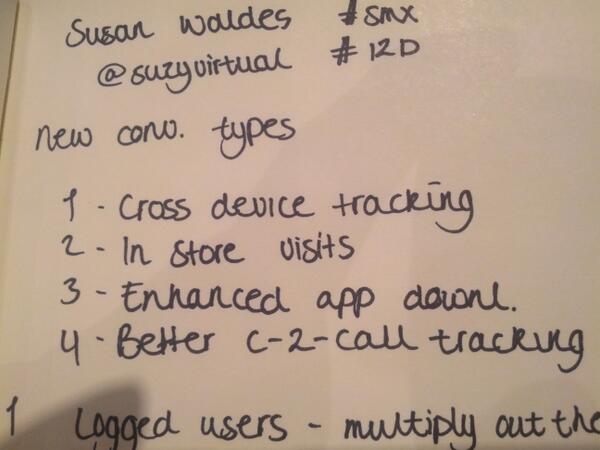 Susan Waldes #SMX
@suzyvirtual #12D
new conv. types
1 - Cross device tracking
2 - In store visits
3 - Enhanced app downl.
4 - Better c-2-call tracking
1 Logged users - multiply out the